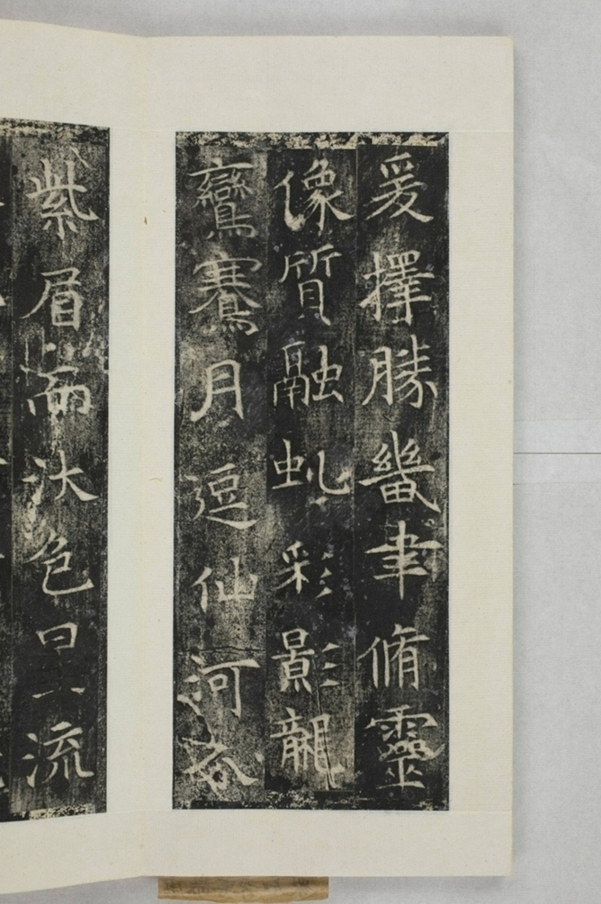 爰擇勝畿聿脩靈
像質融虬彩影
鸞鶱月逗仙河
紫眉而汰色日上流